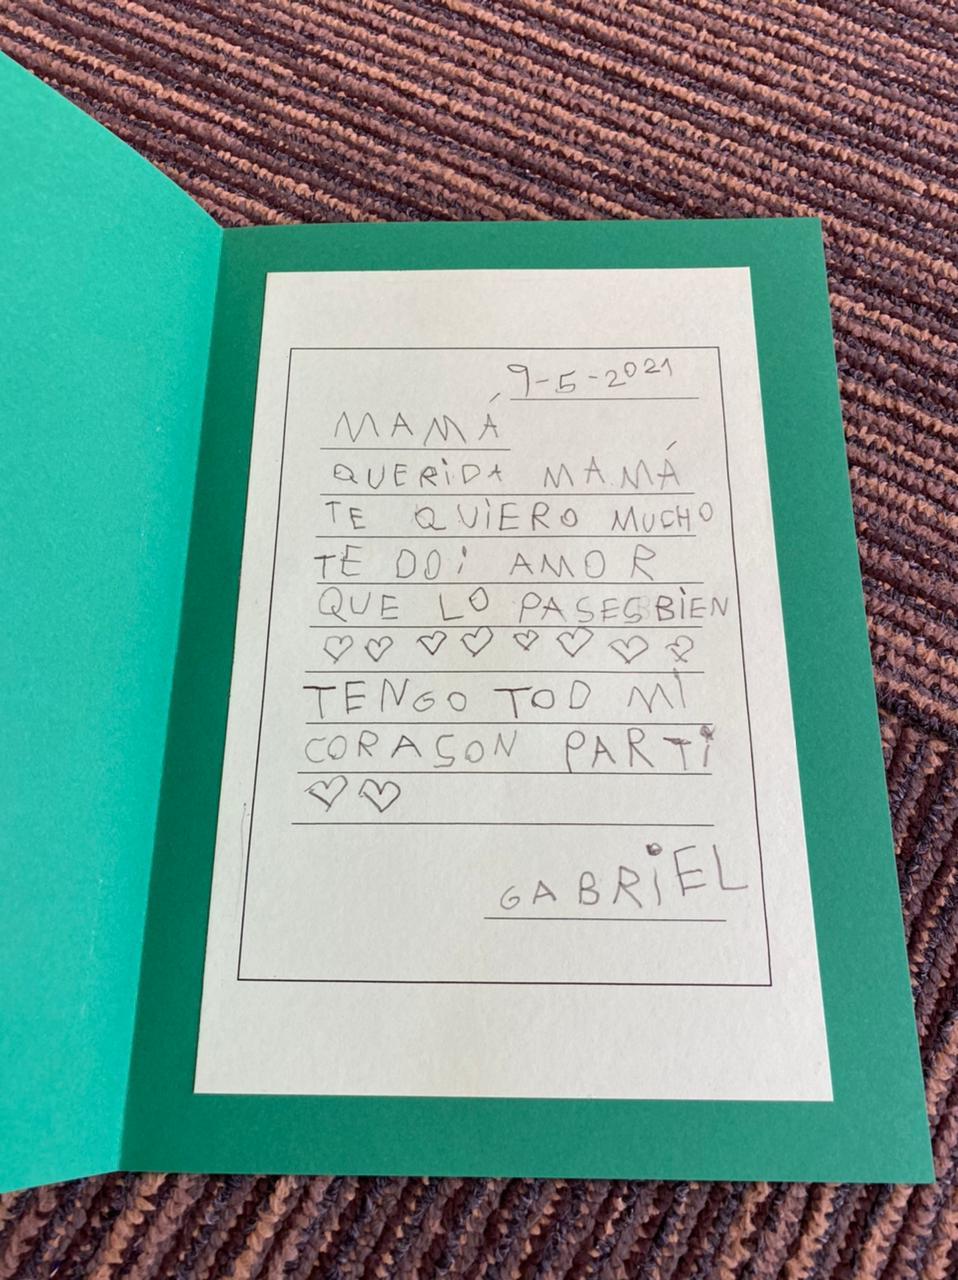 9-5-2021
MAMÁ
QUERiDA MAMÁ
TE QUiERO MUCHO
TE DOi AMOR
QUE LO PASES BiEN
♡♡♡♡♡♡♡♡
TENGO TOD Mi
CORASON PARTi
♡♡
GABRiEL